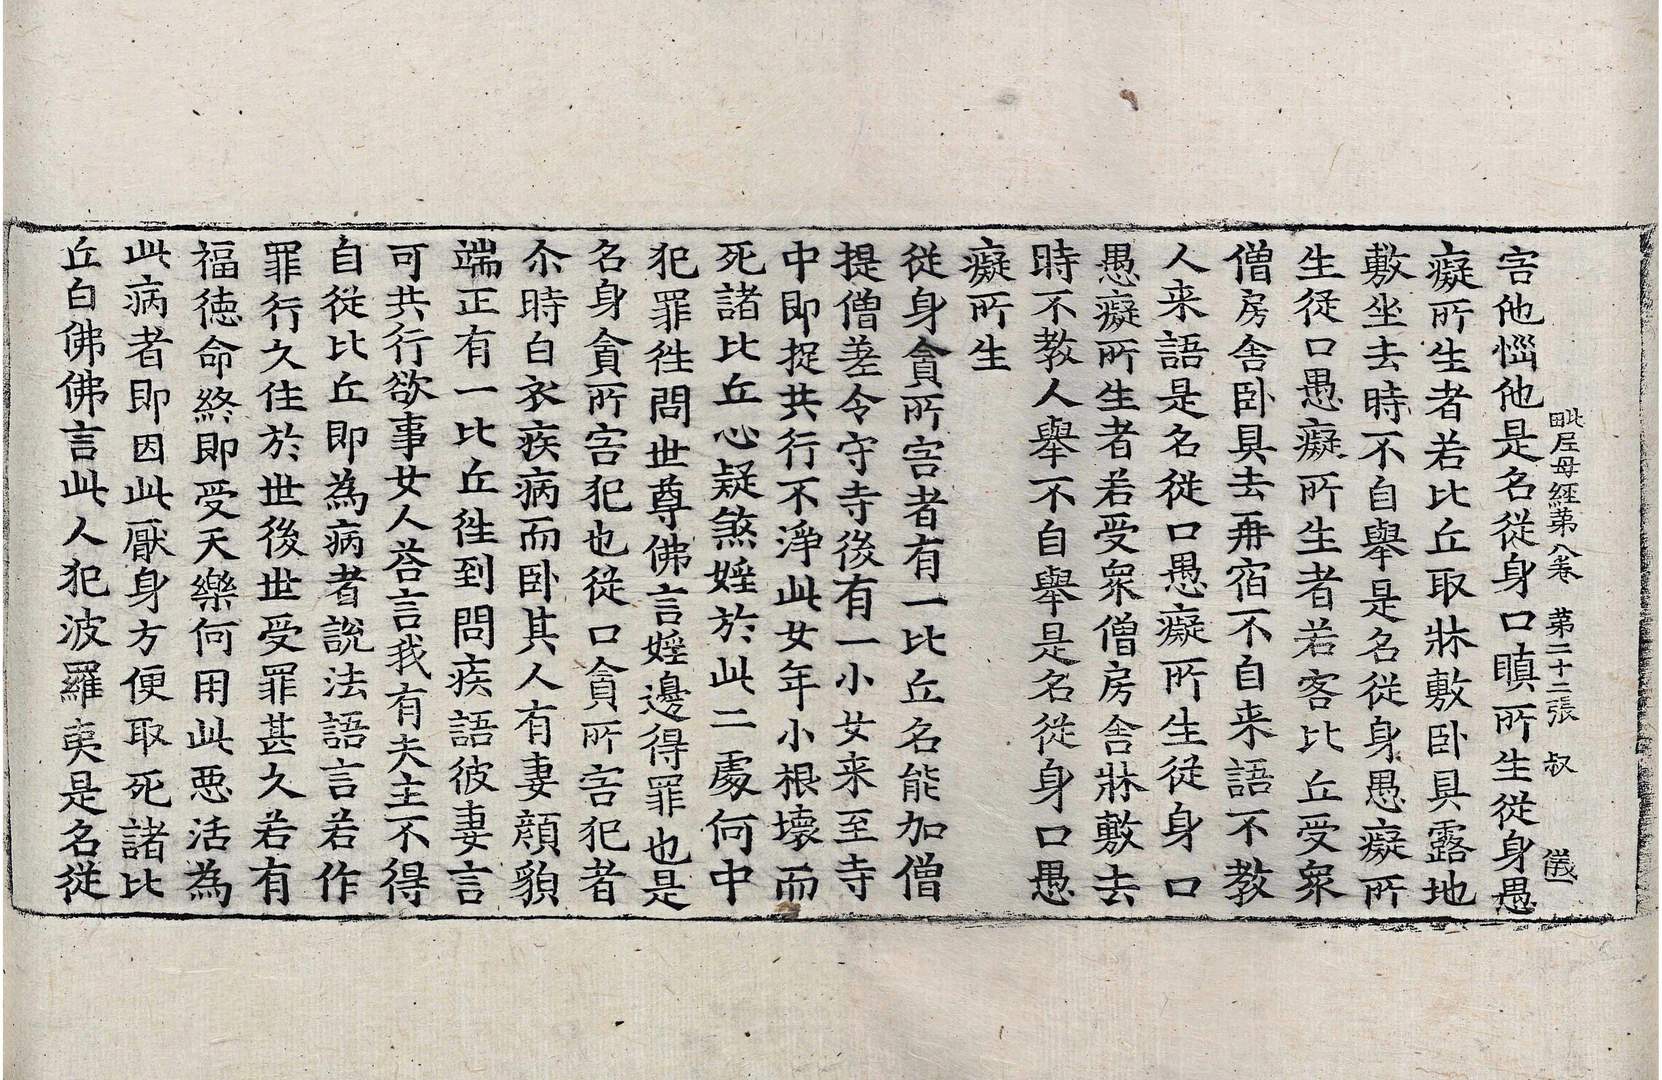 毗尼母經第八卷 第二十二張 叔 儀
害他惱他是名從身口瞋所生從身愚
癡所生者若比丘取牀敷卧具露地
敷坐去時不自舉是名從身愚癡所
生從口愚癡所生者若客比丘受衆
僧房舍卧具去再宿不自来語不教
人来語是名從口愚癡所生從身口
愚癡所生者若受衆僧房舍牀敷去
時不教人舉不自舉是名從身口愚
癡所生
從身貪所害者有一比丘名能加僧
提僧差令守寺後有一小女来至寺
中即捉共行不淨此女年小根壞而
死諸比丘心疑煞婬於此二處何中
犯罪徃問世尊佛言婬邊得罪也是
名身貪所害犯也從口貪所害犯者
尒時白衣疾病而卧其人有妻顔貌
端正有一比丘徃到問疾語彼妻言
可共行欲事女人荅言我有夫主不得
自從比丘即為病者說法語言若作
罪行久住於世後世受罪甚久若有
福徳命終即受天樂何用此惡活為
此病者即因此厭身方便取死諸比
丘白佛佛言此人犯波羅夷是名從